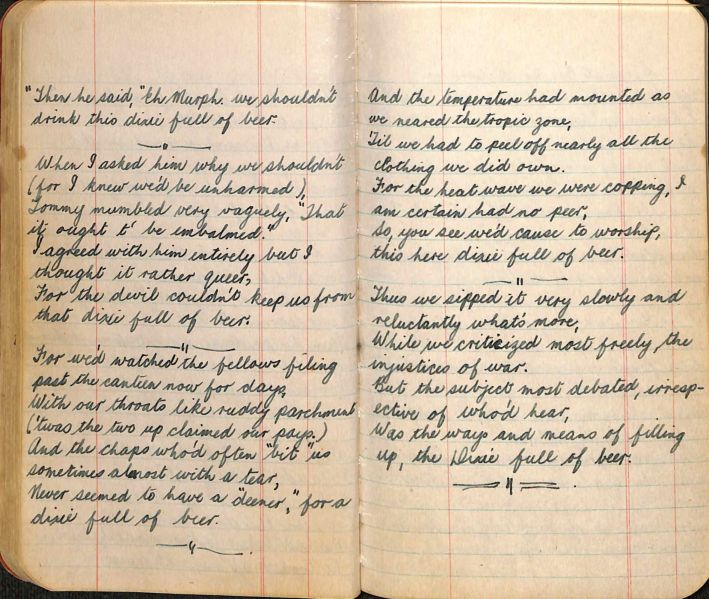 "Then he said, "Eh Murph. we shouldn't
drink this dixie full of beer.
When I asked him why we shouldn't
(for I knew we'd be unharmed),
Tommy mumbled very vaguely, "That
it ought t' be embalmed."
I agreed with him entirely but I
thought it rather queer,
For the devil couldn't keep us from
that dixie full of beer.
For we'd watched the fellows filing
past the canteen now for days,
With our throats like ruddy parchment
('twas the two up claimed our pays.)
And the chaps who'd often "bit" us
sometimes almost with a tear,
Never seemed to have a "deener," for a
dixie full of beer.
And the temperature had mounted as
we neared the tropic zone,
Til we had to peel off nearly all the
clothing we did own.
For the heat wave we were copping, I
am certain had no peer,
So, you see we'd cause to worship,
this here dixie full of beer.
Thus we sipped it very slowly and
reluctantly what's more,
While we criticized most freely, the
injustices of war.
But the subject most debated, irresp-
ective of who'd hear,
Was the ways and means of filling
up, the Dixie full of beer.